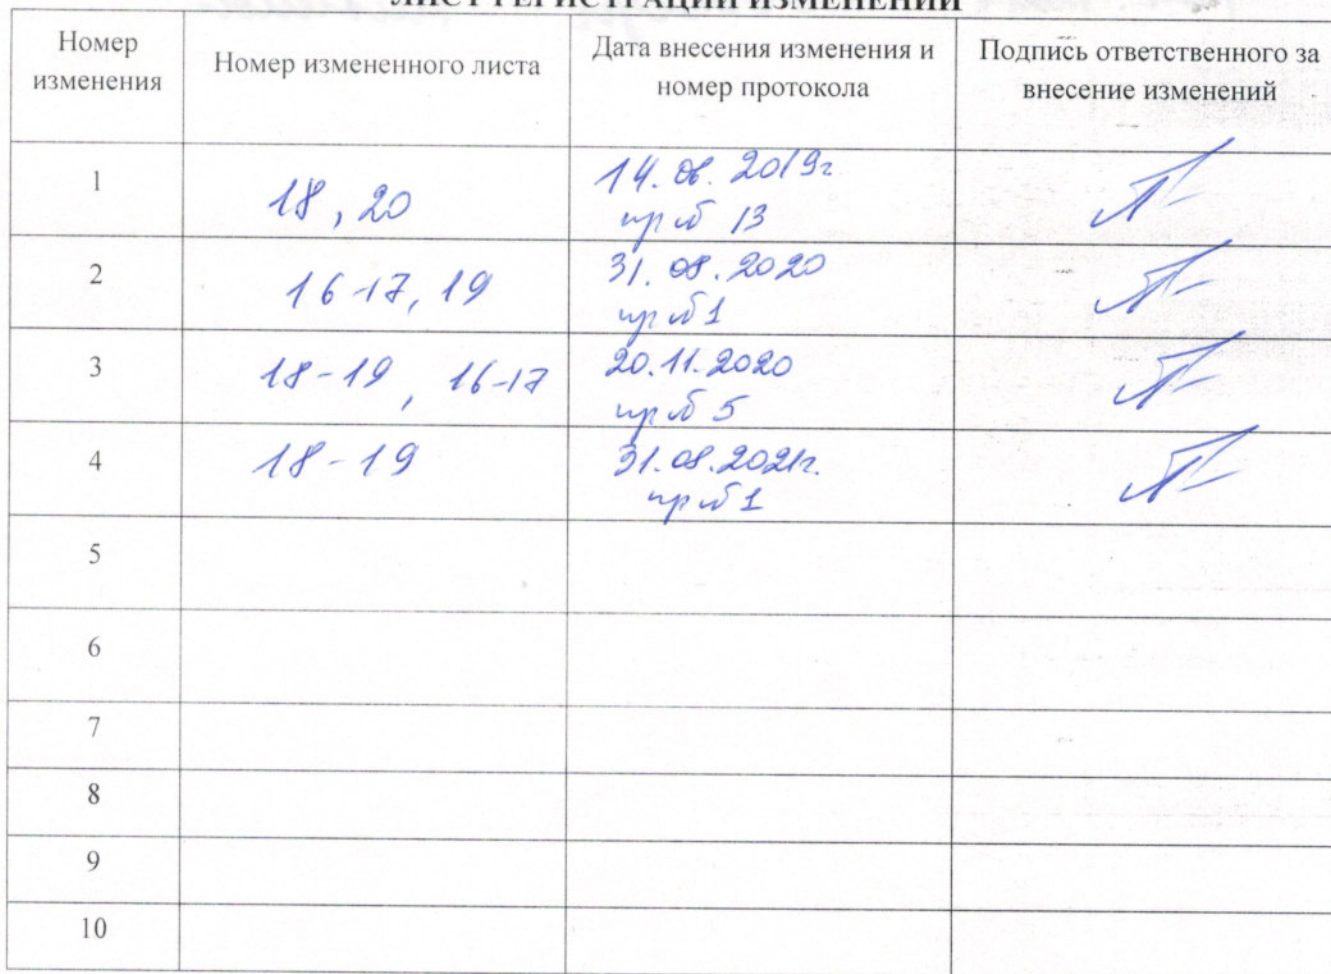 ЛИСТ РЕГИСТРАЦИИ ИЗМЕНЕНИЙ
Номер
изменения
Номер измененного листа
Дата внесения изменения и
номер протокола
Подпись ответственного за
внесение изменений
1
18, 20
14. 2019г
пр № 13
2
16-17, 19
31. 08. 2020
пр № 1
3
18-19, 16-17
20.11.2020
пр № 5
4
18-19
31.08.2021г.
пр № 1
5
6
7
8
9
10